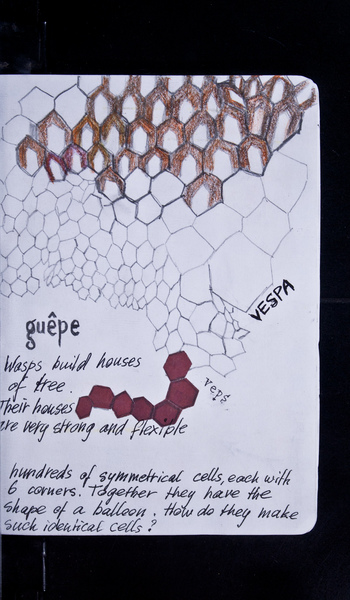 VESPA
guêpe
Wasps build houses
of tree.
veps
Their houses
are very strong and flexiple
hundreds of symmetrical cells, each with
6 corners. Together they have the
shape of a balloon. How do they make
such identical cells?